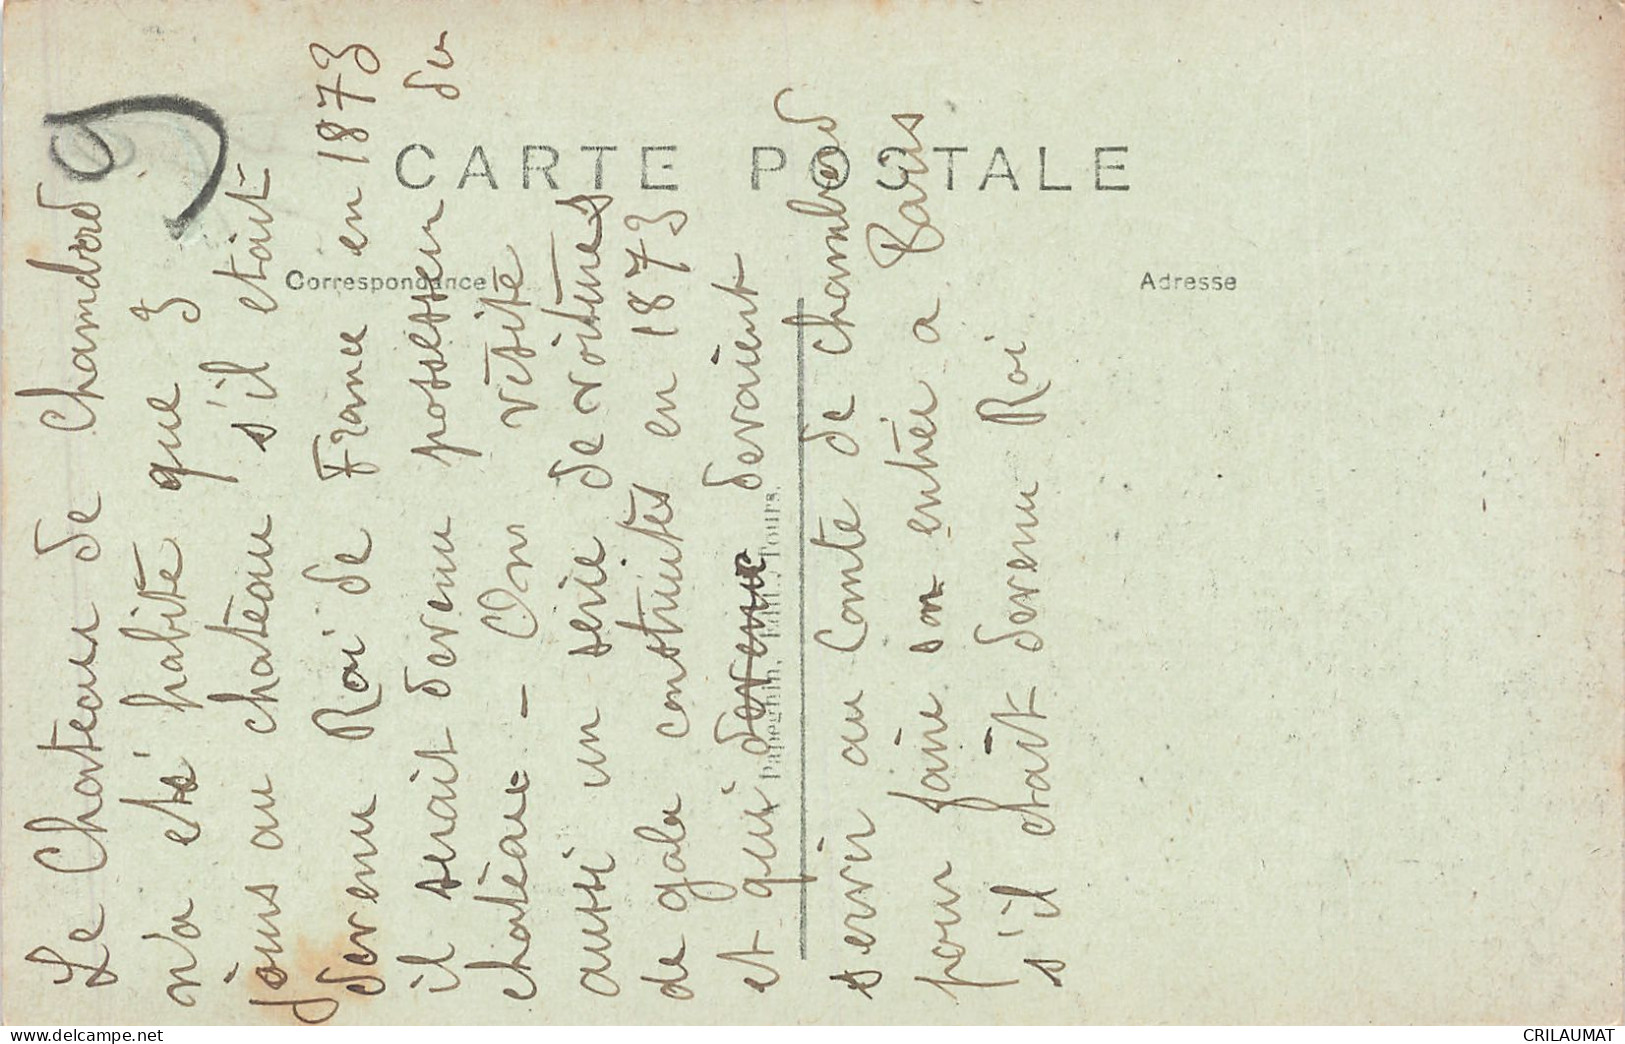 CARTE POSTALE
Correspondance
Adresse
Papeghin, Edit., Tours.
Le Chateau de Chambord
n'a eté habité que 3
jours au chateau s'il etait
devenu Roi de France en 1873
il serait devenu possesseur du
château — On visite
aussi un serie de voitures
de gala construites en 1873
et qui devenu devaient
servir au Comte de Chambord
pour faire son entrée a Paris
s'il était devenu Roi
9
www.delcampe.net
CRILAUMAT